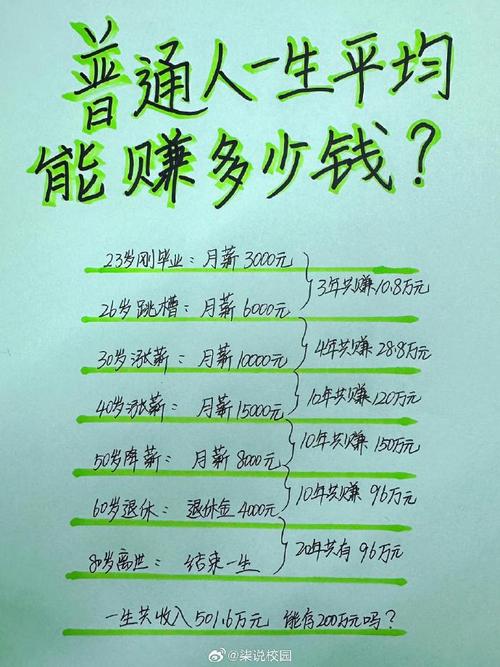 普通人一生平均
能赚多少钱？
23岁刚毕业：月薪3000元
3年共赚10.8万元
26岁跳槽：月薪6000元
4年共赚28.8万元
30岁涨薪：月薪10000元
12年共赚120万元
40岁涨薪：月薪15000元
10年共赚150万元
50岁降薪：月薪8000元
10年共赚96万元
60岁退休：退休金4000元
20年共有96万元
80岁离世：结束一生
一生共收入501.6万元 能存200万元吗？
@柒说校园